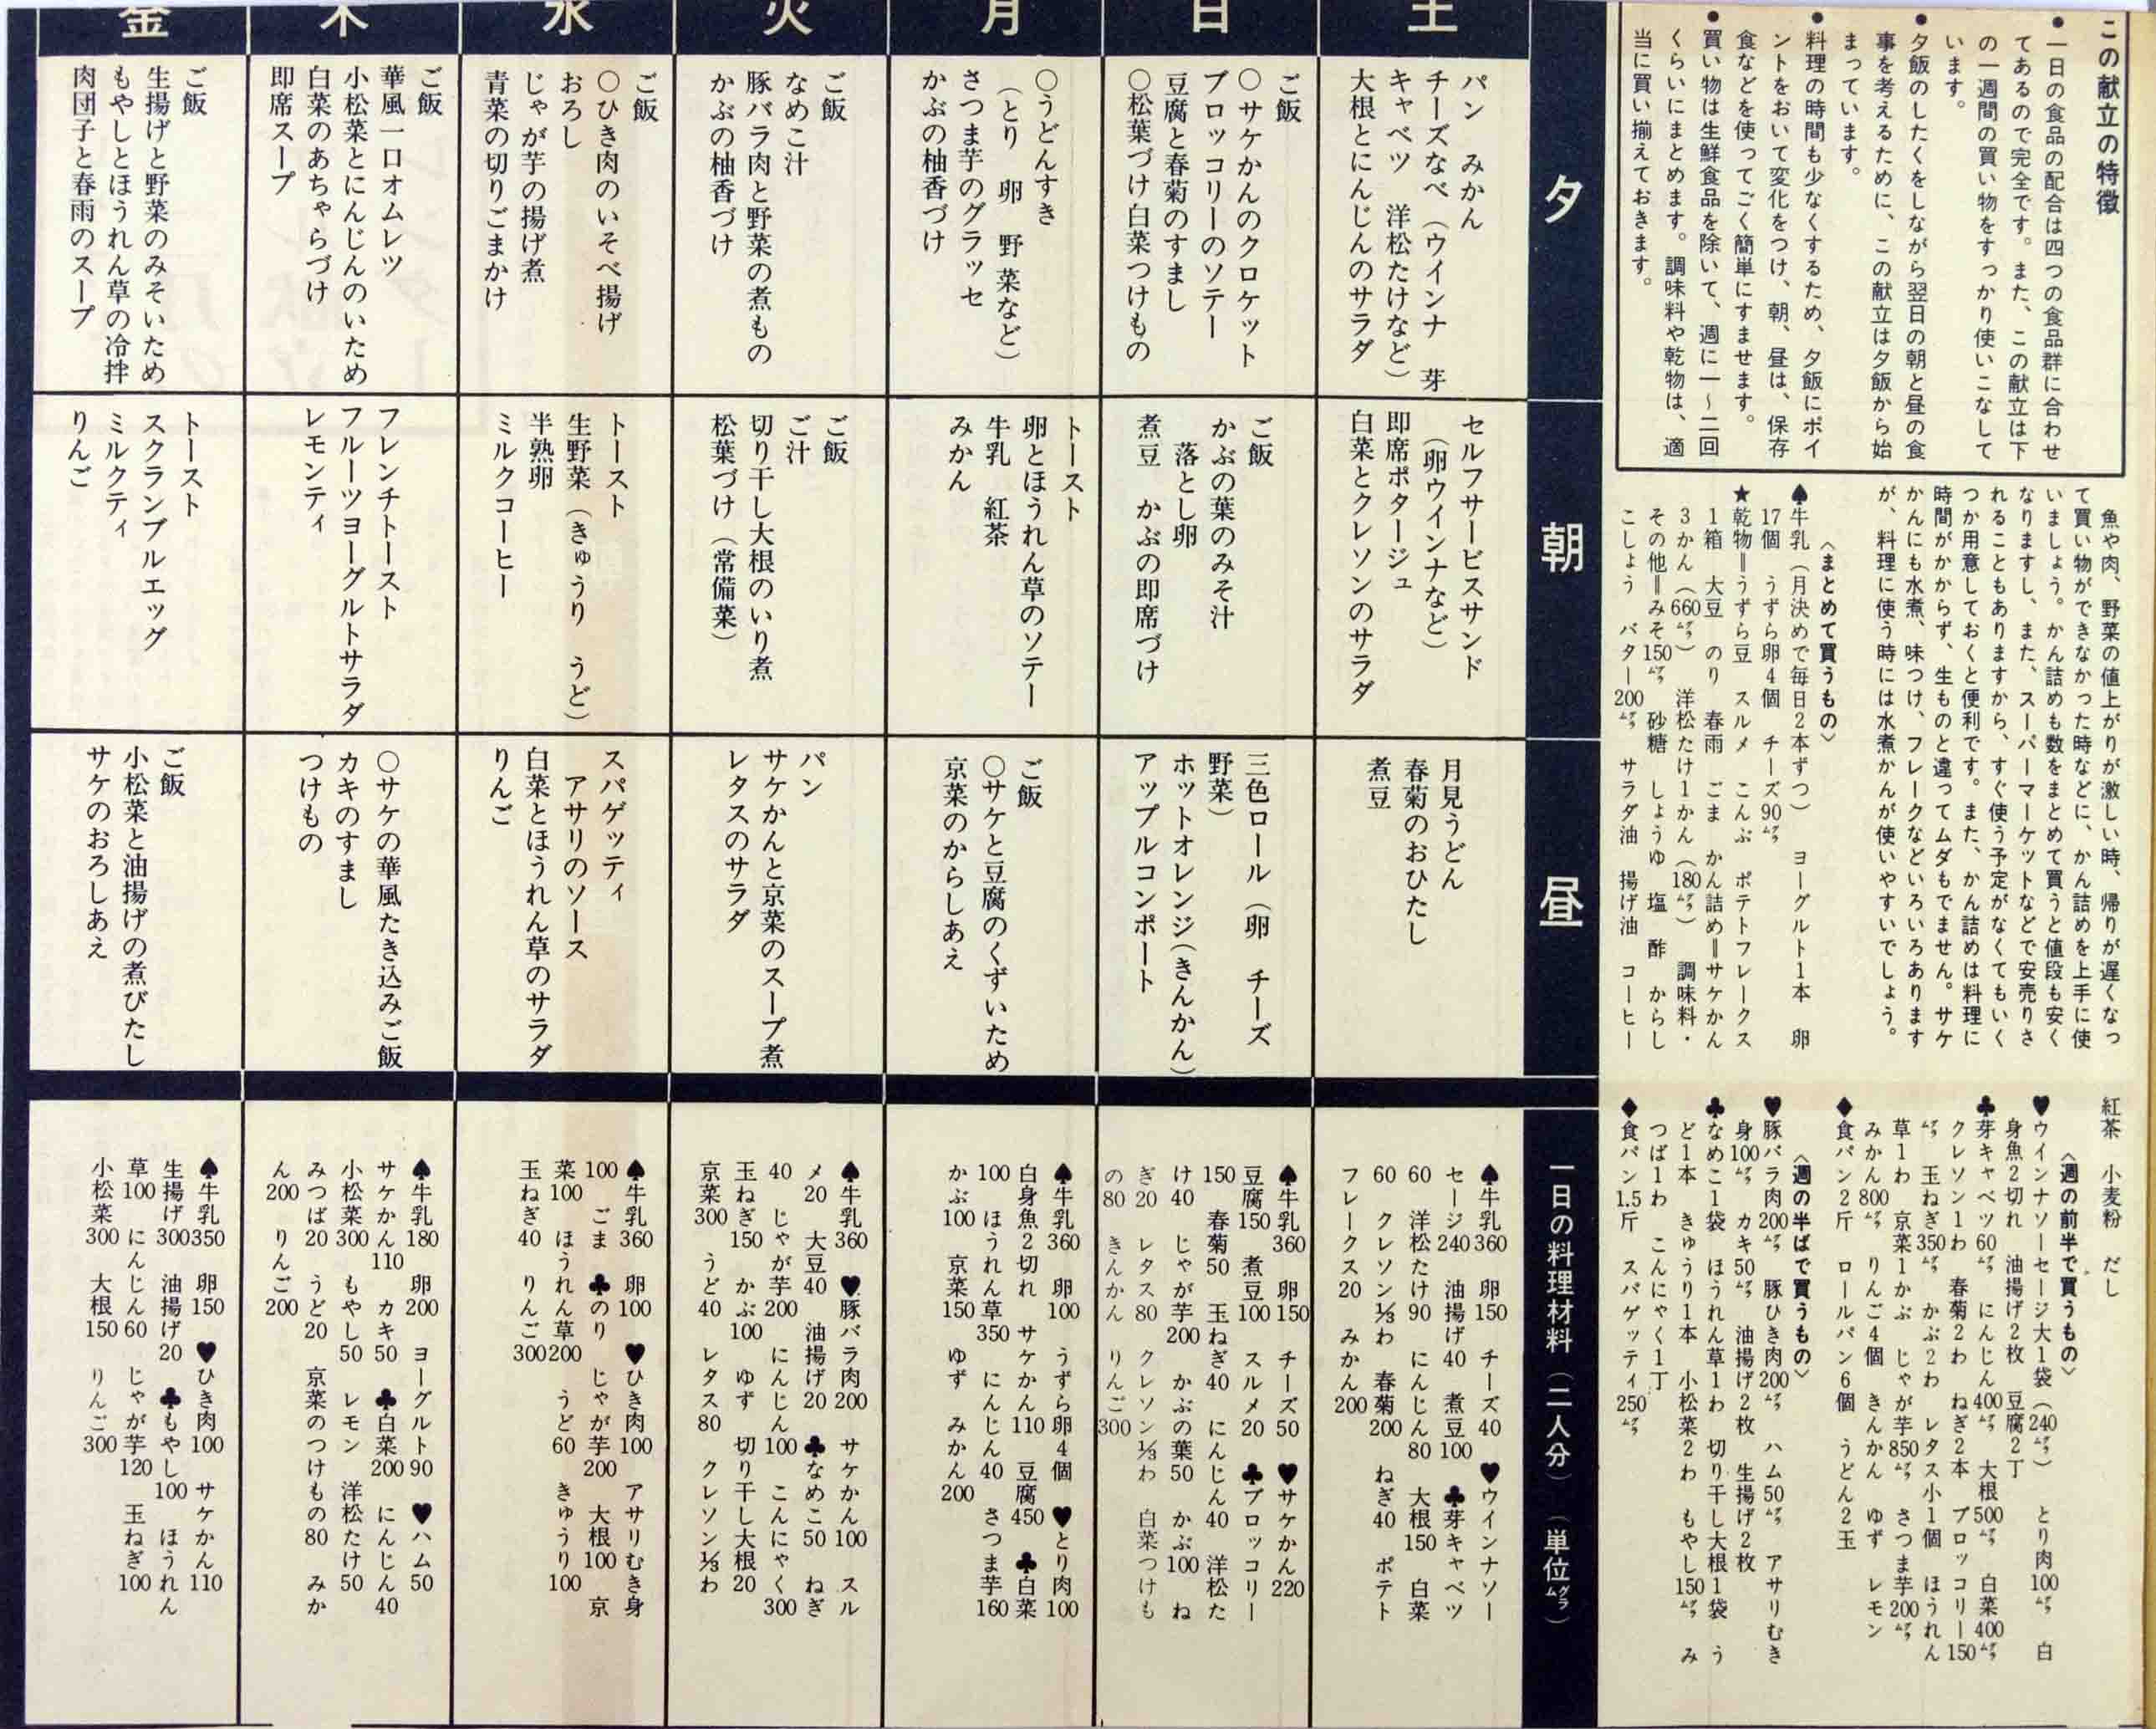 この献立の特徴
●一日の食品の配合は四つの食品群に合わせ
てあるので完全です。また、この献立は下
の一週間の買い物をすっかり使いこなして
います。
●夕飯のしたくをしながら翌日の朝と昼の食
事を考えるために、この献立は夕飯から始
まっています。
●料理の時間も少なくするため、夕飯にポイ
ントをおいて変化をつけ、朝、昼は、保存
食などを使ってごく簡単にすませます。
●買い物は生鮮食品を除いて、週に一〜二回
くらいにまとめます。調味料や乾物は、適
当に買い揃えておきます。
魚や肉、野菜の値上がりが激しい時、帰りが遅くなっ
て買い物ができなかった時などに、かん詰めを上手に使
いましょう。かん詰めも数をまとめて買うと値段も安く
なりますし、また、スーパーマーケットなどで安売りさ
れることもありますから、すぐ使う予定がなくてもいく
つか用意しておくと便利です。また、かん詰めは料理に
時間がかからず、生ものと違ってムダもでません。サケ
かんにも水煮、味つけ、フレークなどいろいろあります
が、料理に使う時には水煮かんが使いやすいでしょう。
〈まとめて買うもの〉
♠牛乳（月決めで毎日2本ずつ） ヨーグルト1本 卵
17個 うずら卵4個 チーズ90㌘
★乾物＝うずら豆 スルメ こんぶ ポテトフレークス
1箱 大豆 のり 春雨 ごま かん詰め＝サケかん
3かん（660㌘） 洋松たけ1かん（180㌘） 調味料・
その他＝みそ150㌘ 砂糖 しょうゆ 塩 酢 からし
こしょう バター200㌘ サラダ油 揚げ油 コーヒー
紅茶 小麦粉 だし
〈週の前半で買うもの〉
♥ウインナソーセージ大1袋（240㌘） とり肉100㌘ 白
身魚2切れ 油揚げ2枚 豆腐2丁
♣芽キャベツ60㌘ にんじん400㌘ 大根500㌘ 白菜400㌘
クレソン1わ 春菊2わ ねぎ2本 ブロッコリー150
㌘ 玉ねぎ350㌘ かぶ2わ レタス小1個 ほうれん
草1わ 京菜1かぶ じゃが芋850㌘ さつま芋200㌘
みかん800㌘ りんご4個 きんかん ゆず レモン
♦食パン2斤 ロールパン6個 うどん2玉
〈週の半ばで買うもの〉
♥豚バラ肉200㌘ 豚ひき肉200㌘ ハム50㌘ アサリむき
身100㌘ カキ50㌘ 油揚げ2枚 生揚げ2枚
♣なめこ1袋 ほうれん草1わ 切り干し大根1袋 う
ど1本 きゅうり1本 小松菜2わ もやし150㌘ み
つば1わ こんにゃく1丁
♦食パン1.5斤 スパゲッティ250㌘
夕
朝
昼
一日の料理材料（二人分）（単位㌘）
土
パン みかん
チーズなべ（ウインナ 芽
キャベツ 洋松たけなど）
大根とにんじんのサラダ
セルフサービスサンド
（卵ウインナなど）
即席ポタージュ
白菜とクレソンのサラダ
月見うどん
春菊のおひたし
煮豆
♠牛乳360 卵150 チーズ40 ♥ウインナソー
セージ240 油揚げ40 煮豆100 ♣芽キャベツ
60 洋松たけ90 にんじん80 大根150 白菜
60 クレソン⅓わ 春菊200 ねぎ40 ポテト
フレークス20 みかん200
日
ご飯
○サケかんのクロケット
ブロッコリーのソテー
豆腐と春菊のすまし
○松葉づけ白菜つけもの
ご飯
かぶの葉のみそ汁
落とし卵
煮豆 かぶの即席づけ
三色ロール（卵 チーズ
野菜）
ホットオレンジ（きんかん）
アップルコンポート
♠牛乳360 卵150 チーズ50 ♥サケかん220
豆腐150 煮豆100 スルメ20 ♣ブロッコリー
150 春菊50 玉ねぎ40 にんじん40 洋松た
け40 じゃが芋200 かぶの葉50 かぶ100 ね
ぎ20 レタス80 クレソン⅓わ 白菜つけも
の80 きんかん りんご300
月
○うどんすき
（とり 卵 野菜など）
さつま芋のグラッセ
かぶの柚香づけ
トースト
卵とほうれん草のソテー
牛乳 紅茶
みかん
ご飯
○サケと豆腐のくずいため
京菜のからしあえ
♠牛乳360 卵100 うずら卵4個 ♥とり肉100
白身魚2切れ サケかん110 豆腐450 ♣白菜
100 ほうれん草350 にんじん40 さつま芋160
かぶ100 京菜150 ゆず みかん200
火
ご飯
なめこ汁
豚バラ肉と野菜の煮もの
かぶの柚香づけ
ご飯
ご汁
切り干し大根のいり煮
松葉づけ（常備菜）
パン
サケかんと京菜のスープ煮
レタスのサラダ
♠牛乳360 ♥豚バラ肉200 サケかん100 スル
メ20 大豆40 油揚げ20 ♣なめこ50 ねぎ
40 じゃが芋200 にんじん100 こんにゃく300
玉ねぎ150 かぶ100 ゆず 切り干し大根20
京菜300 うど40 レタス80 クレソン⅓わ
水
ご飯
○ひき肉のいそべ揚げ
おろし
じゃが芋の揚げ煮
青菜の切りごまかけ
トースト
生野菜（きゅうり うど）
半熟卵
ミルクコーヒー
スパゲッティ
アサリのソース
白菜とほうれん草のサラダ
りんご
♠牛乳360 卵100 ♥ひき肉100 アサリむき身
100 ごま ♣のり じゃが芋200 大根100 京
菜100 ほうれん草200 うど60 きゅうり100
玉ねぎ40 りんご300
木
ご飯
華風一口オムレツ
小松菜とにんじんのいため
白菜のあちゃらづけ
即席スープ
フレンチトースト
フルーツヨーグルトサラダ
レモンティ
○サケの華風たき込みご飯
カキのすまし
つけもの
♠牛乳180 卵200 ヨーグルト90 ♥ハム50
サケかん110 カキ50 ♣白菜200 にんじん40
小松菜300 もやし50 レモン 洋松たけ50
みつば20 うど20 京菜のつけもの80 みか
ん200 りんご200
金
ご飯
生揚げと野菜のみそいため
もやしとほうれん草の冷拌
肉団子と春雨のスープ
トースト
スクランブルエッグ
ミルクティ
りんご
ご飯
小松菜と油揚げの煮びたし
サケのおろしあえ
♠牛乳350 卵150 ♥ひき肉100 サケかん110
生揚げ300 油揚げ20 ♣もやし100 ほうれん
草100 にんじん60 じゃが芋120 玉ねぎ100
小松菜300 大根150 りんご300